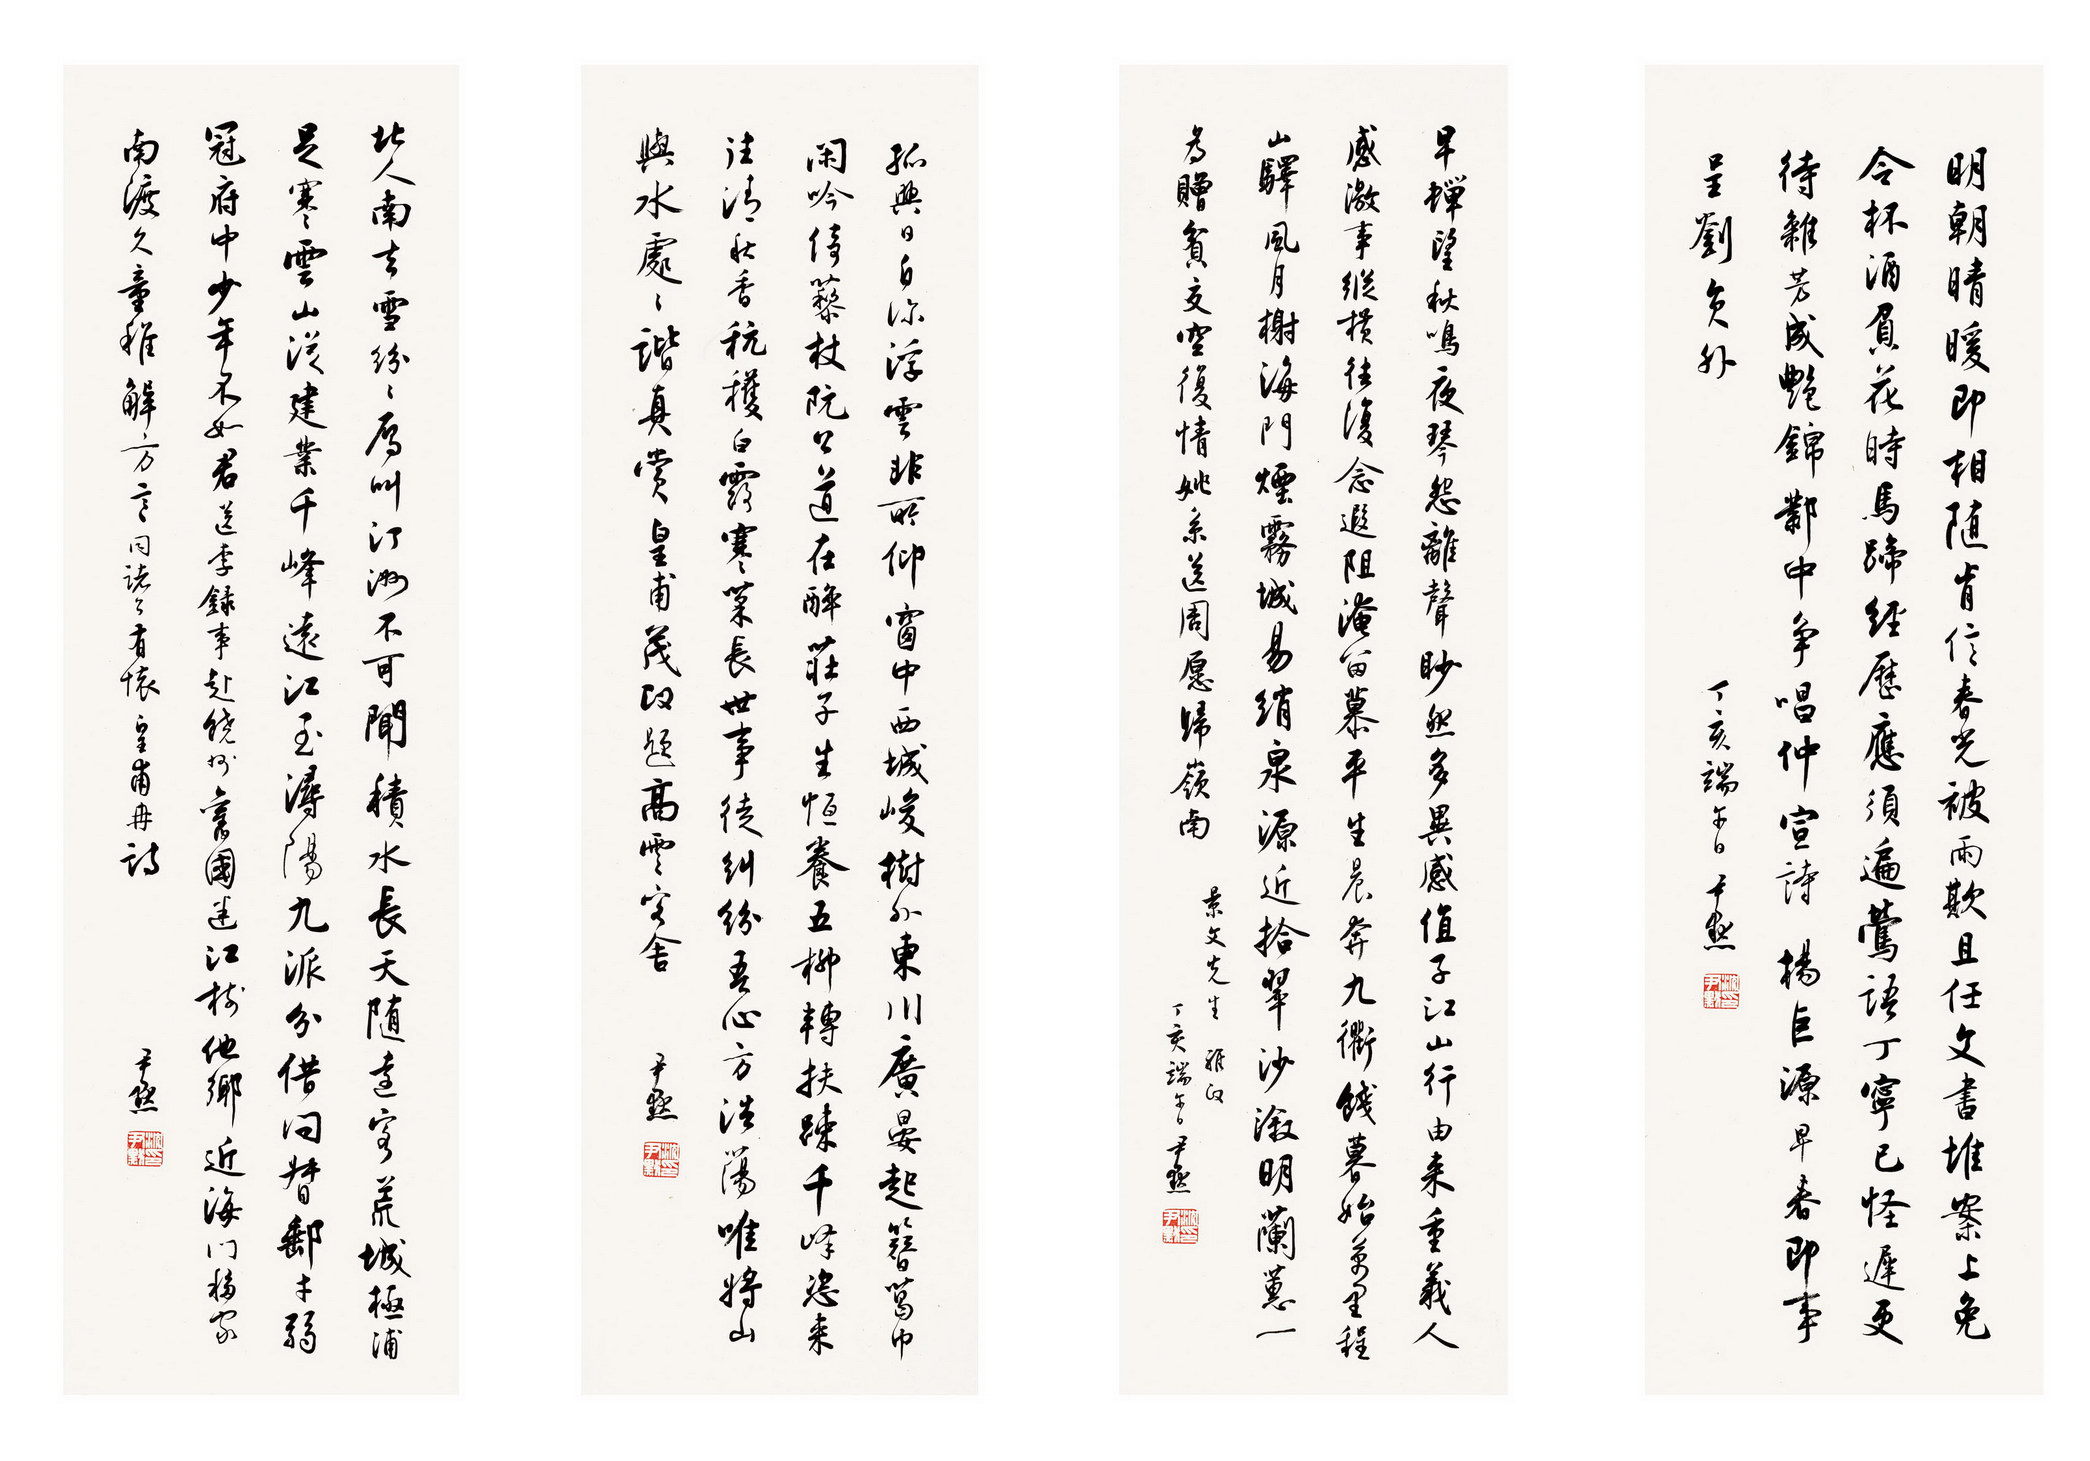 明朝晴暖即相随肯信春光被雨欺且任文書堆案上免
令杯酒負花時馬蹄經歷應須遍鶯語丁寧已怪遲更
待雜芳成艷錦鄴中争唱仲宣詩 楊巨源早春即事
呈劉員外
丁亥端午日 尹默
尹默
早蟬望秋鳴夜琴怨離聲眇然多異感值子江山行由来重義人
感激事縱横往復念遐阻淹留慕平生晨奔九衢餞暮始萬里程
山驛風月榭海門煙霧城易綃泉源近拾翠沙溆明蘭蕙一
為贈貧交空復情 姚系送周愿歸嶺南
景文先生 雅政
丁亥端午日 尹默
尹默
孤興日自深浮雲非所仰窗中西城峻樹外東川廣晏起簪葛巾
閑吟倚藜杖阮公道在醉莊子生恒養五柳轉扶疎千峰恣来
往清秋香秔穫白露寒菜長世事徒糾紛吾心方浩蕩唯將山
與水處〻諧真賞 皇甫茂政題高雲客舍
尹默
尹默
北人南去雪紛〻雁叫汀洲不可聞積水長天随遠客荒城極浦
足寒雲山從建業千峰遠江至潯陽九派分借問督郵才弱
冠府中少年不如君 送李録事赴饒州 舊國迷江樹他鄉近海門移家
南渡久童稚解方言 同諸公有懷 皇甫冉詩
尹默
尹默